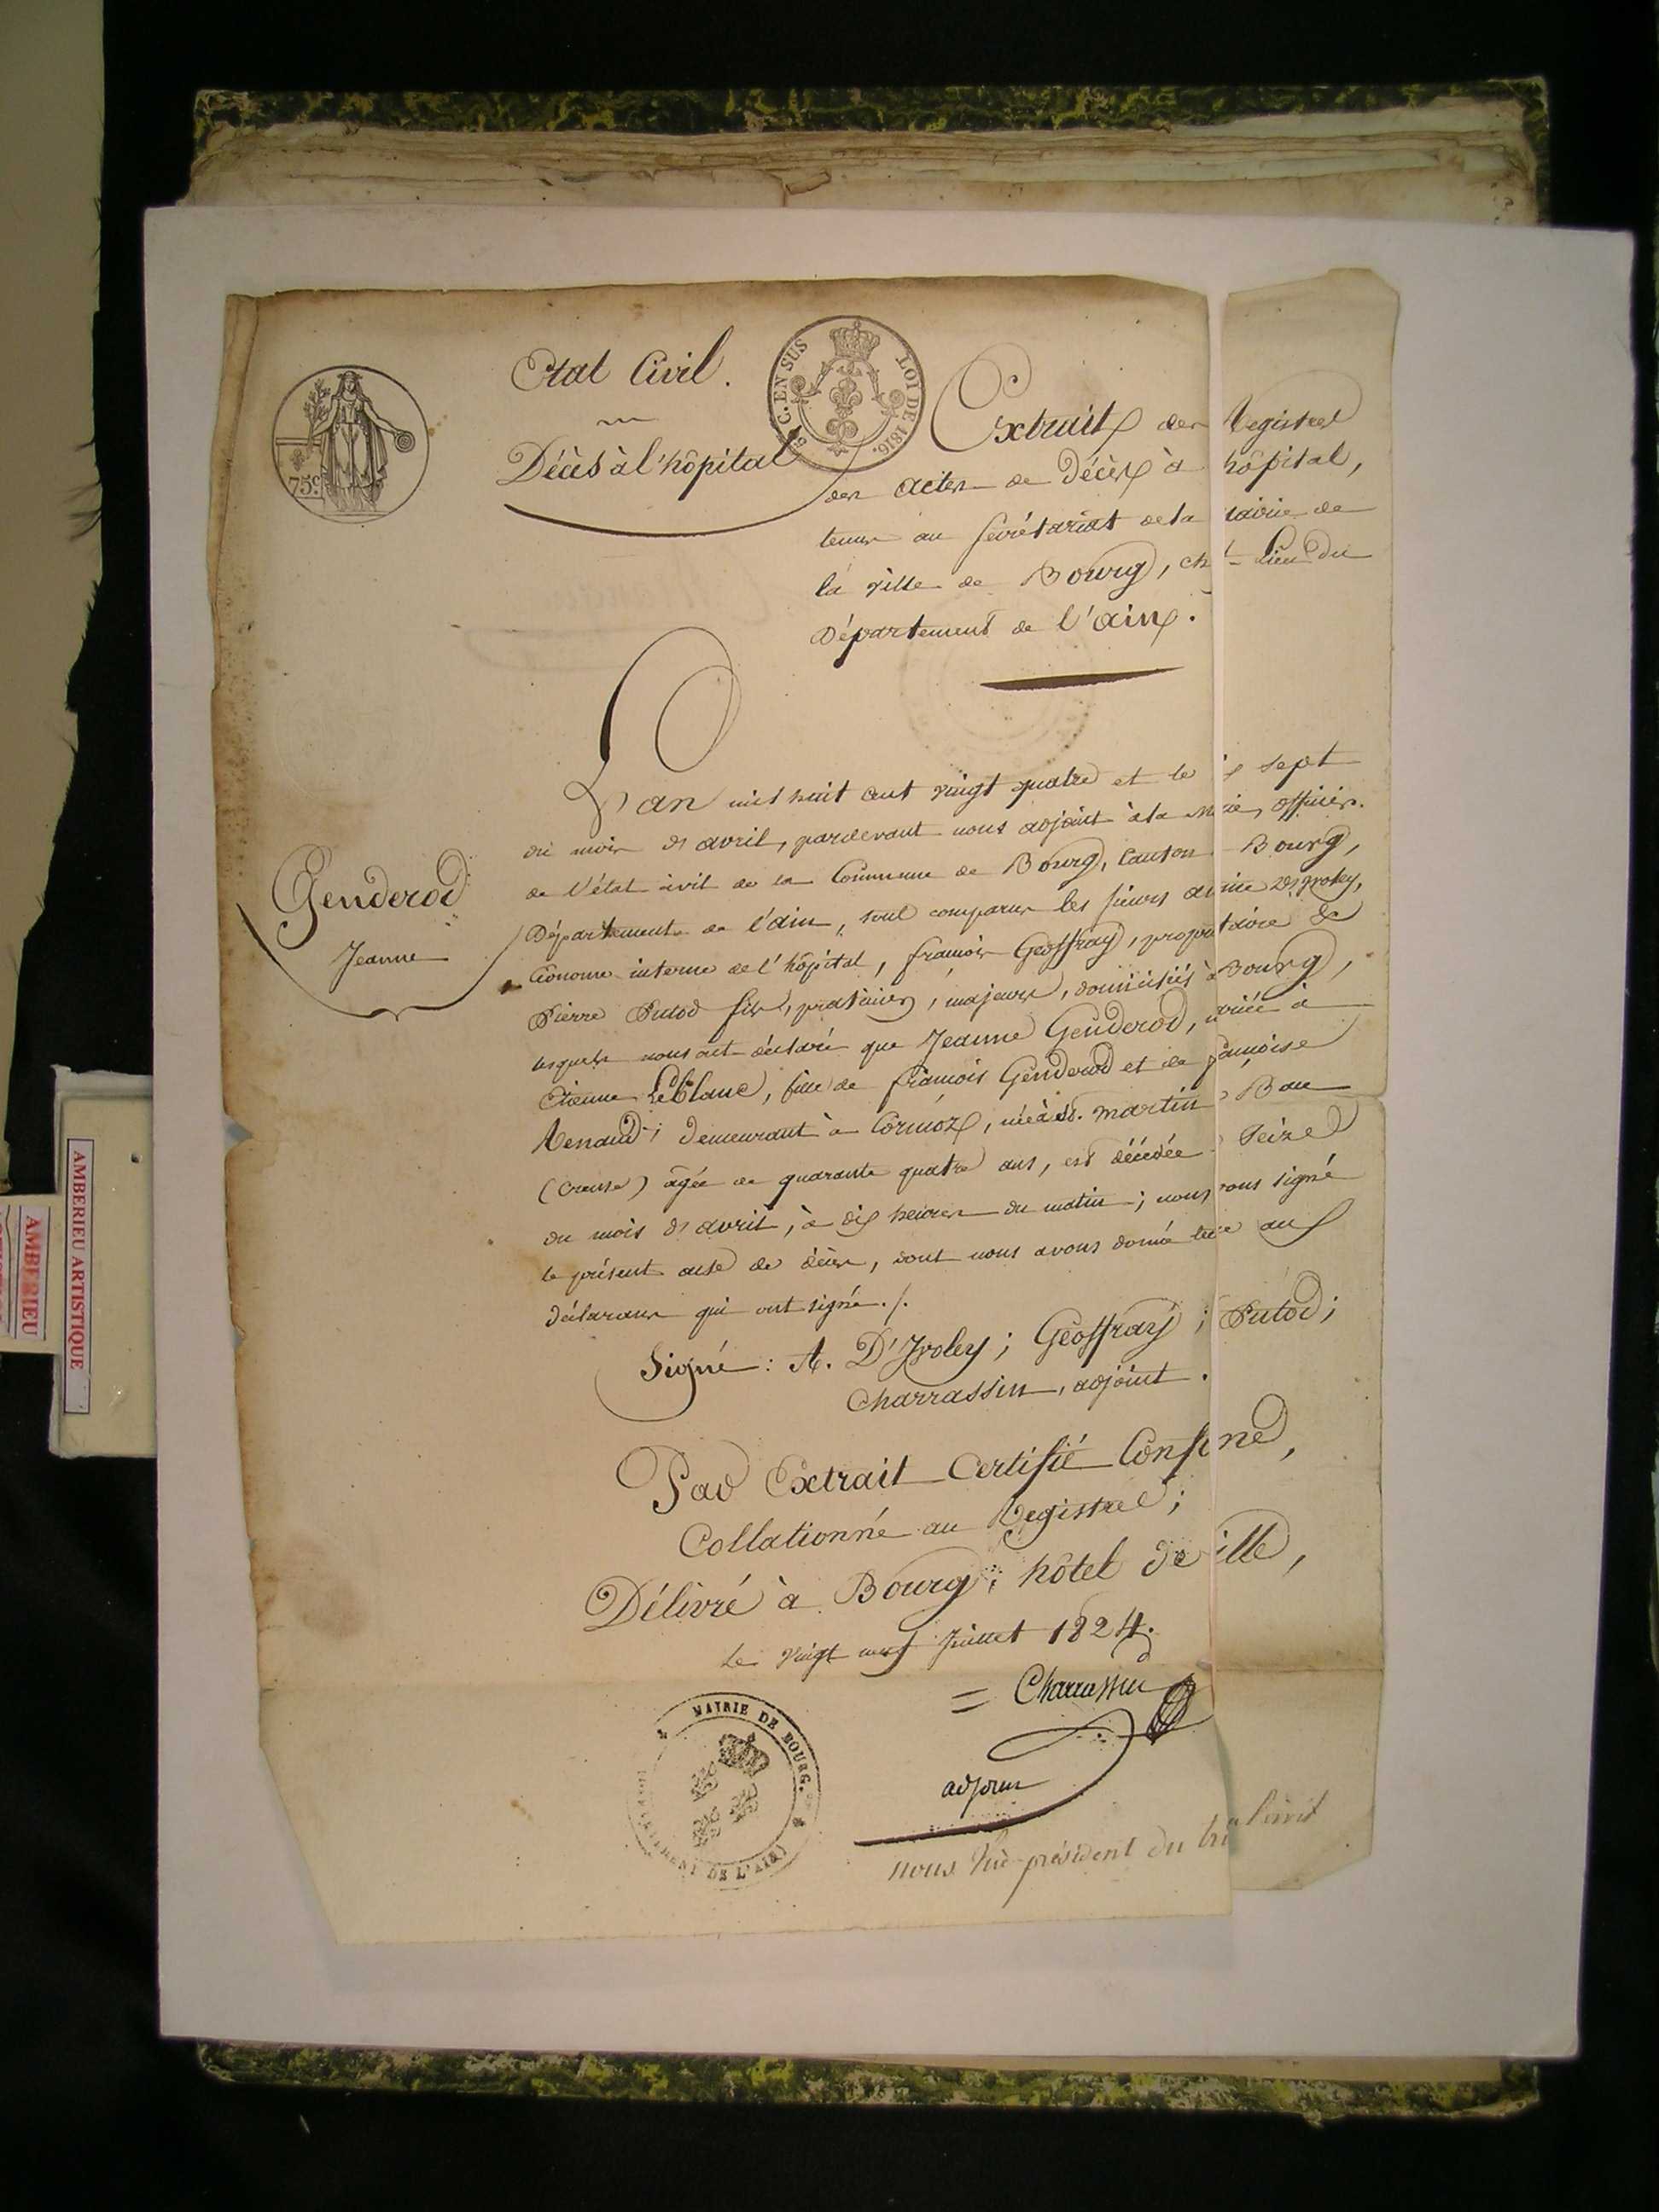 Etat Civil.
Décès à l'hôpital
5 C. EN SUS LOI DE 1816.
75 c.
Extrait des Registres
des actes de Décès à hôpital,
tenus au secrétariat de la airie de
la ville de Bourg, ch t - Lieu du
Département de l'ain.
Genderod
Jeanne
L'an mil huit cent vingt quatre et le sept
du mois d'avril, pardevant nous adjoint à la officier
de l'état civil de la Commune de Bourg, Canton Bourg,
Département de l'ain, sont comparus les sieurs
Econome interne de l'hôpital, françois Geoffray, propriétaire &
Pierre Putod fils, praticien, majeurs, domiciliés à Bourg,
lesquels nous ont déclaré que Jeanne Genderod, ariée à
Etienne LeBlanc, fille de françois Genderod et de françoise
Renaud; demeurant à Cormoz, née à St. Martin
(Creuse) âgée de quarante quatre ans, est décédée Seize
du mois d'avril, à dix heures du matin; nous vons signé
le présent acte de décès, dont nous avons donné aux
déclarans qui ont signé./.
Signé: A. D'Ivoley; Geoffray; Putod;
Charrassin, adjoint.
Par Extrait Certifié Conf me,
Collationné au Registre;
Délivré à Bourg; hôtel de ille,
le vingt neuf Juillet 1824.
= Charrassin
adjoint
MAIRIE DE BOURG.
DEPARTEMENT DE L'AIN
nous Vice-président du tri l civil
AMBERIEU ARTISTIQUE
AMBERIEU